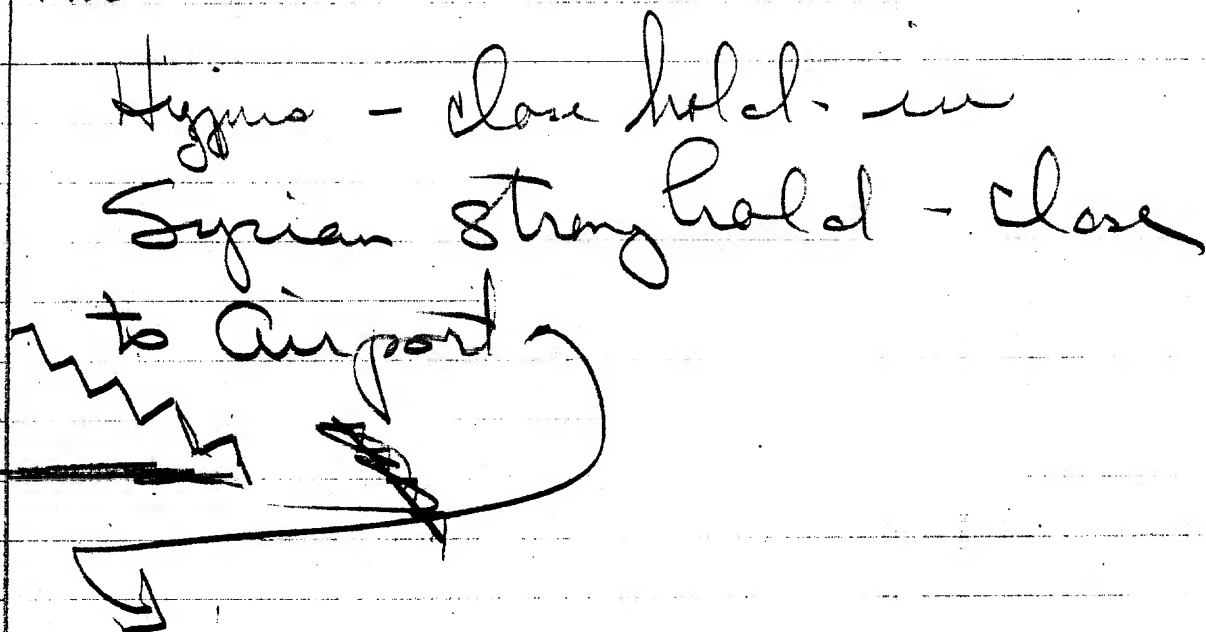 - close hold - in
Syrian stronghold - close
to airport